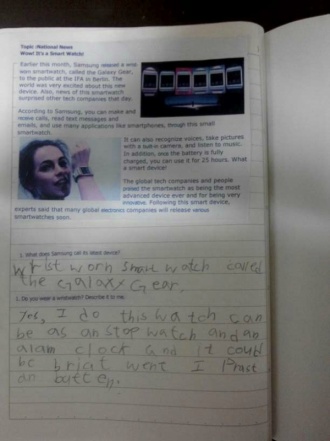 Topic :National News
Wow! It's a Smart Watch!
Earlier this month, Samsung released a wrist
worn smartwatch, called the Galaxy Gear,
to the public at the IFA in Berlin. The
world was very excited about this new
device. Also, news of this smartwatch
surprised other tech companies that day.
According to Samsung, you can make and
receive calls, read text messages and
emails, and use many applications like smartphones, though this small
smartwatch.
It can also recognize voices, take pictures
with a built-in camera, and listen to music.
In addition, once the battery is fully
charged, you can use it for 25 hours. What
a smart device!
The global tech companies and people
praised the smartwatch as being the most
advanced device ever and for being very
innovative. Following this smart device,
experts said that many global electronics companies will release various
smartwatches soon.
1. What does Samsung call its latest device?
Wrist worn smart watch called
the Galaxy Gear.
1. Do you wear a wristwatch? Describe it to me.
Yes, I do this watch can
be as an stop watch and an
alam clock and it could
be briat went I Prast
an butten.